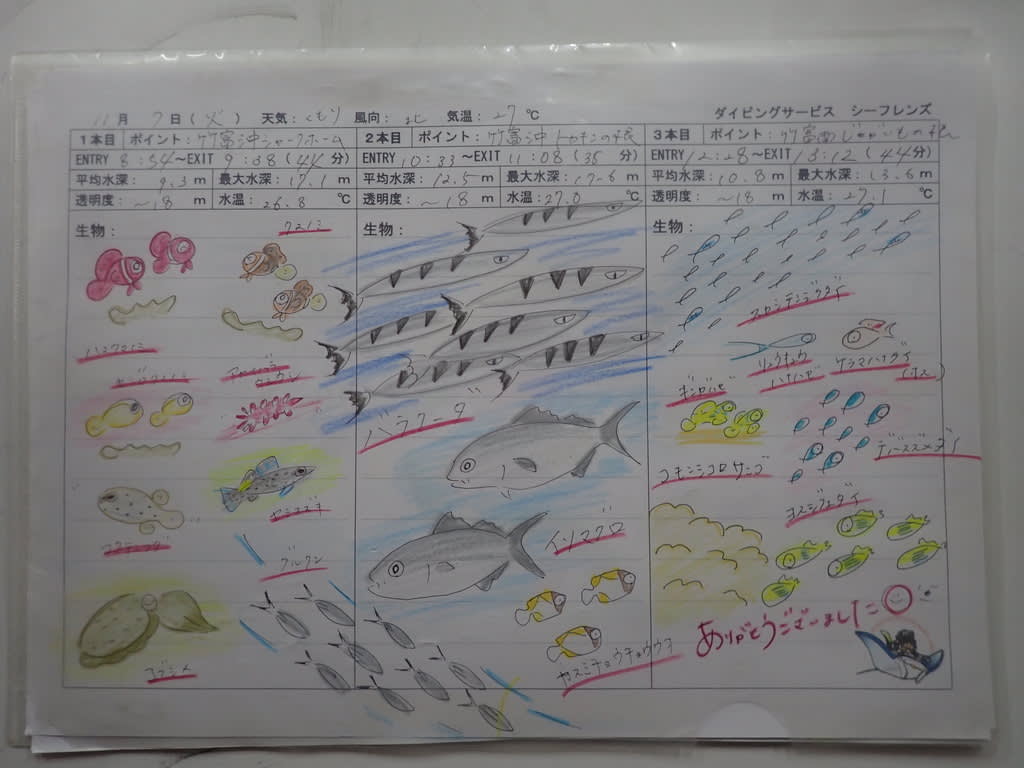 11月 7日(火) 天気:くもり 風向:北 気温:27℃ ダイビングサービス シーフレンズ
1本目 ポイント:竹富沖シャークホーム
ENTRY 8:54~EXIT 9:38(44分)
平均水深: 9.3 m 最大水深: 17.1 m
透明度: ~18 m 水温: 26.8 ℃
生物:
クマノミ
ハマクマノミ
ヤマブキスズメダイ
コブシメ
グルクン
2本目 ポイント:竹富沖 トカキンの根
ENTRY 10:33~EXIT 11:08(35 分)
平均水深: 12.5 m 最大水深: 17.6 m
透明度: ~18 m 水温: 27.0 ℃
生物:
バラクーダ
イソマグロ
カスミチョウチョウウオ
3本目 ポイント:竹富南じゃがいもの根
ENTRY 12:28~EXIT 13:12(44分)
平均水深: 10.8 m 最大水深: 13.6 m
透明度: ~18 m 水温: 27.1 ℃
生物:
スカシテンジクダイ
リュウキュウ
ハナハゼ
ケラマハナダイ
(オス)
ギンガハゼ
デバスズメダイ
コモンシコロサンゴ
ヨスジフエダイ
ありがとうございました